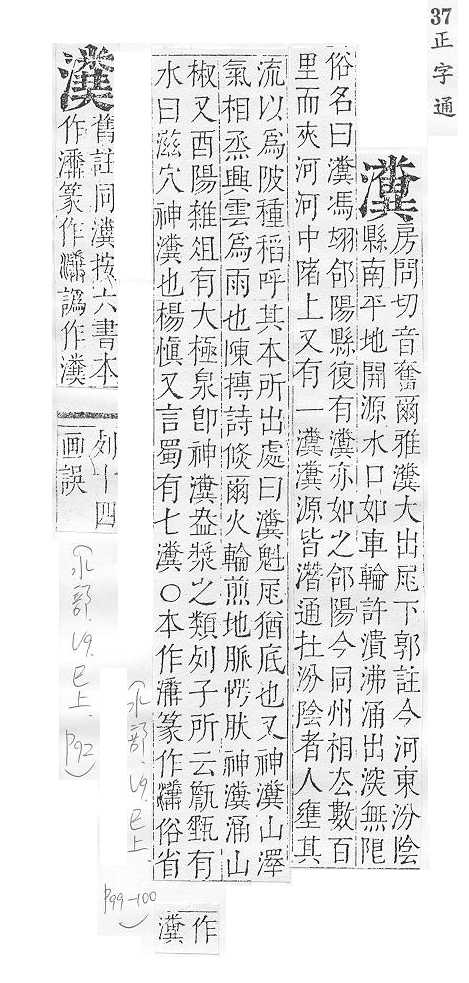 37 正字通
瀵
房問切音奮爾雅瀵大出尾下郭註今河東汾陰
縣南平地開源水口如車輪許濆沸涌出深無限
俗名曰瀵馮翊郃陽縣復有瀵亦如之郃陽今同州相去數百
里而夾河河中陼上又有一瀵瀵源皆潛通在汾陰者人壅其
流以爲陂種稻呼其本所出處曰瀵魁尾猶底也又神瀵山澤
氣相烝興雲爲雨也陳摶詩倐爾火輪煎地脈愕肰神瀵涌山
椒又酉陽雜俎有大極泉卽神瀵盎漿之類列子所云甔甀有
水曰滋穴神瀵也楊愼又言蜀有七瀵○本作篆作俗省
作
瀵
(水部.19.巳上
P99-100)
舊註同瀵按六書本
作篆作譌作
列十四
画誤
(水部.19.巳上.
P92)